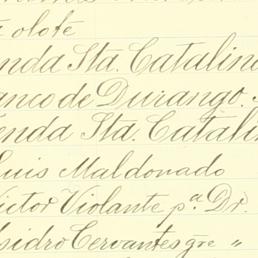 olote
enda Sta. Catalina
anco de Durango.
enda Sta. Catalin
Luis Maldonado
ictor Violante pa. Dr.
sidro Cervantes gre "